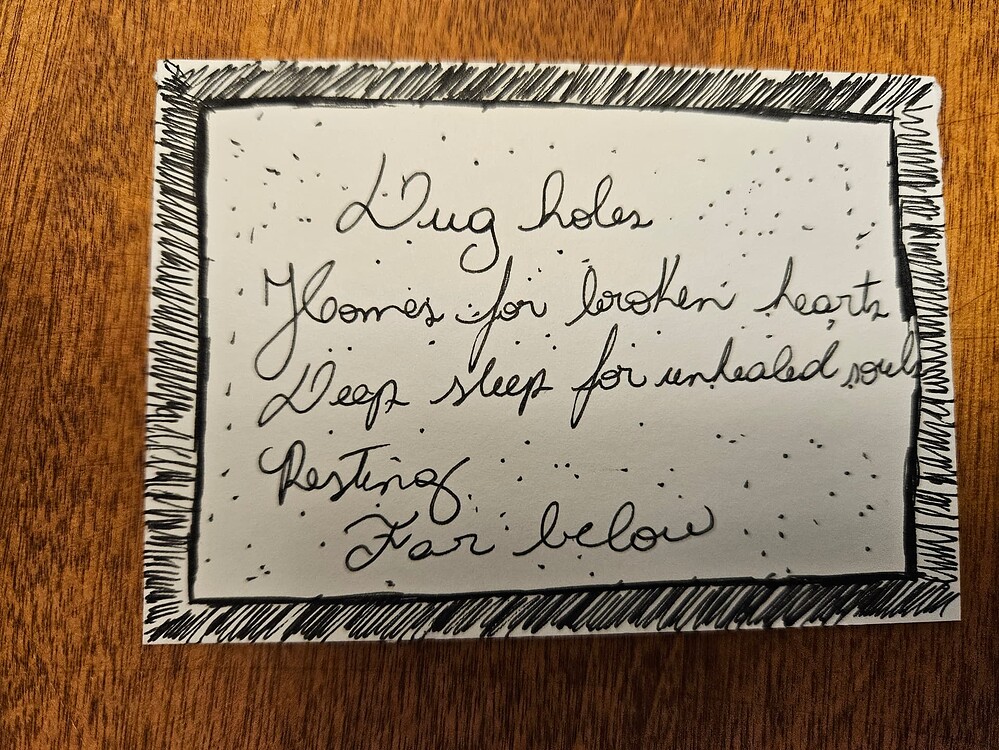 Dug holes
Homes for broken hearts
Deep sleep for unhealed souls
Resting
Far below